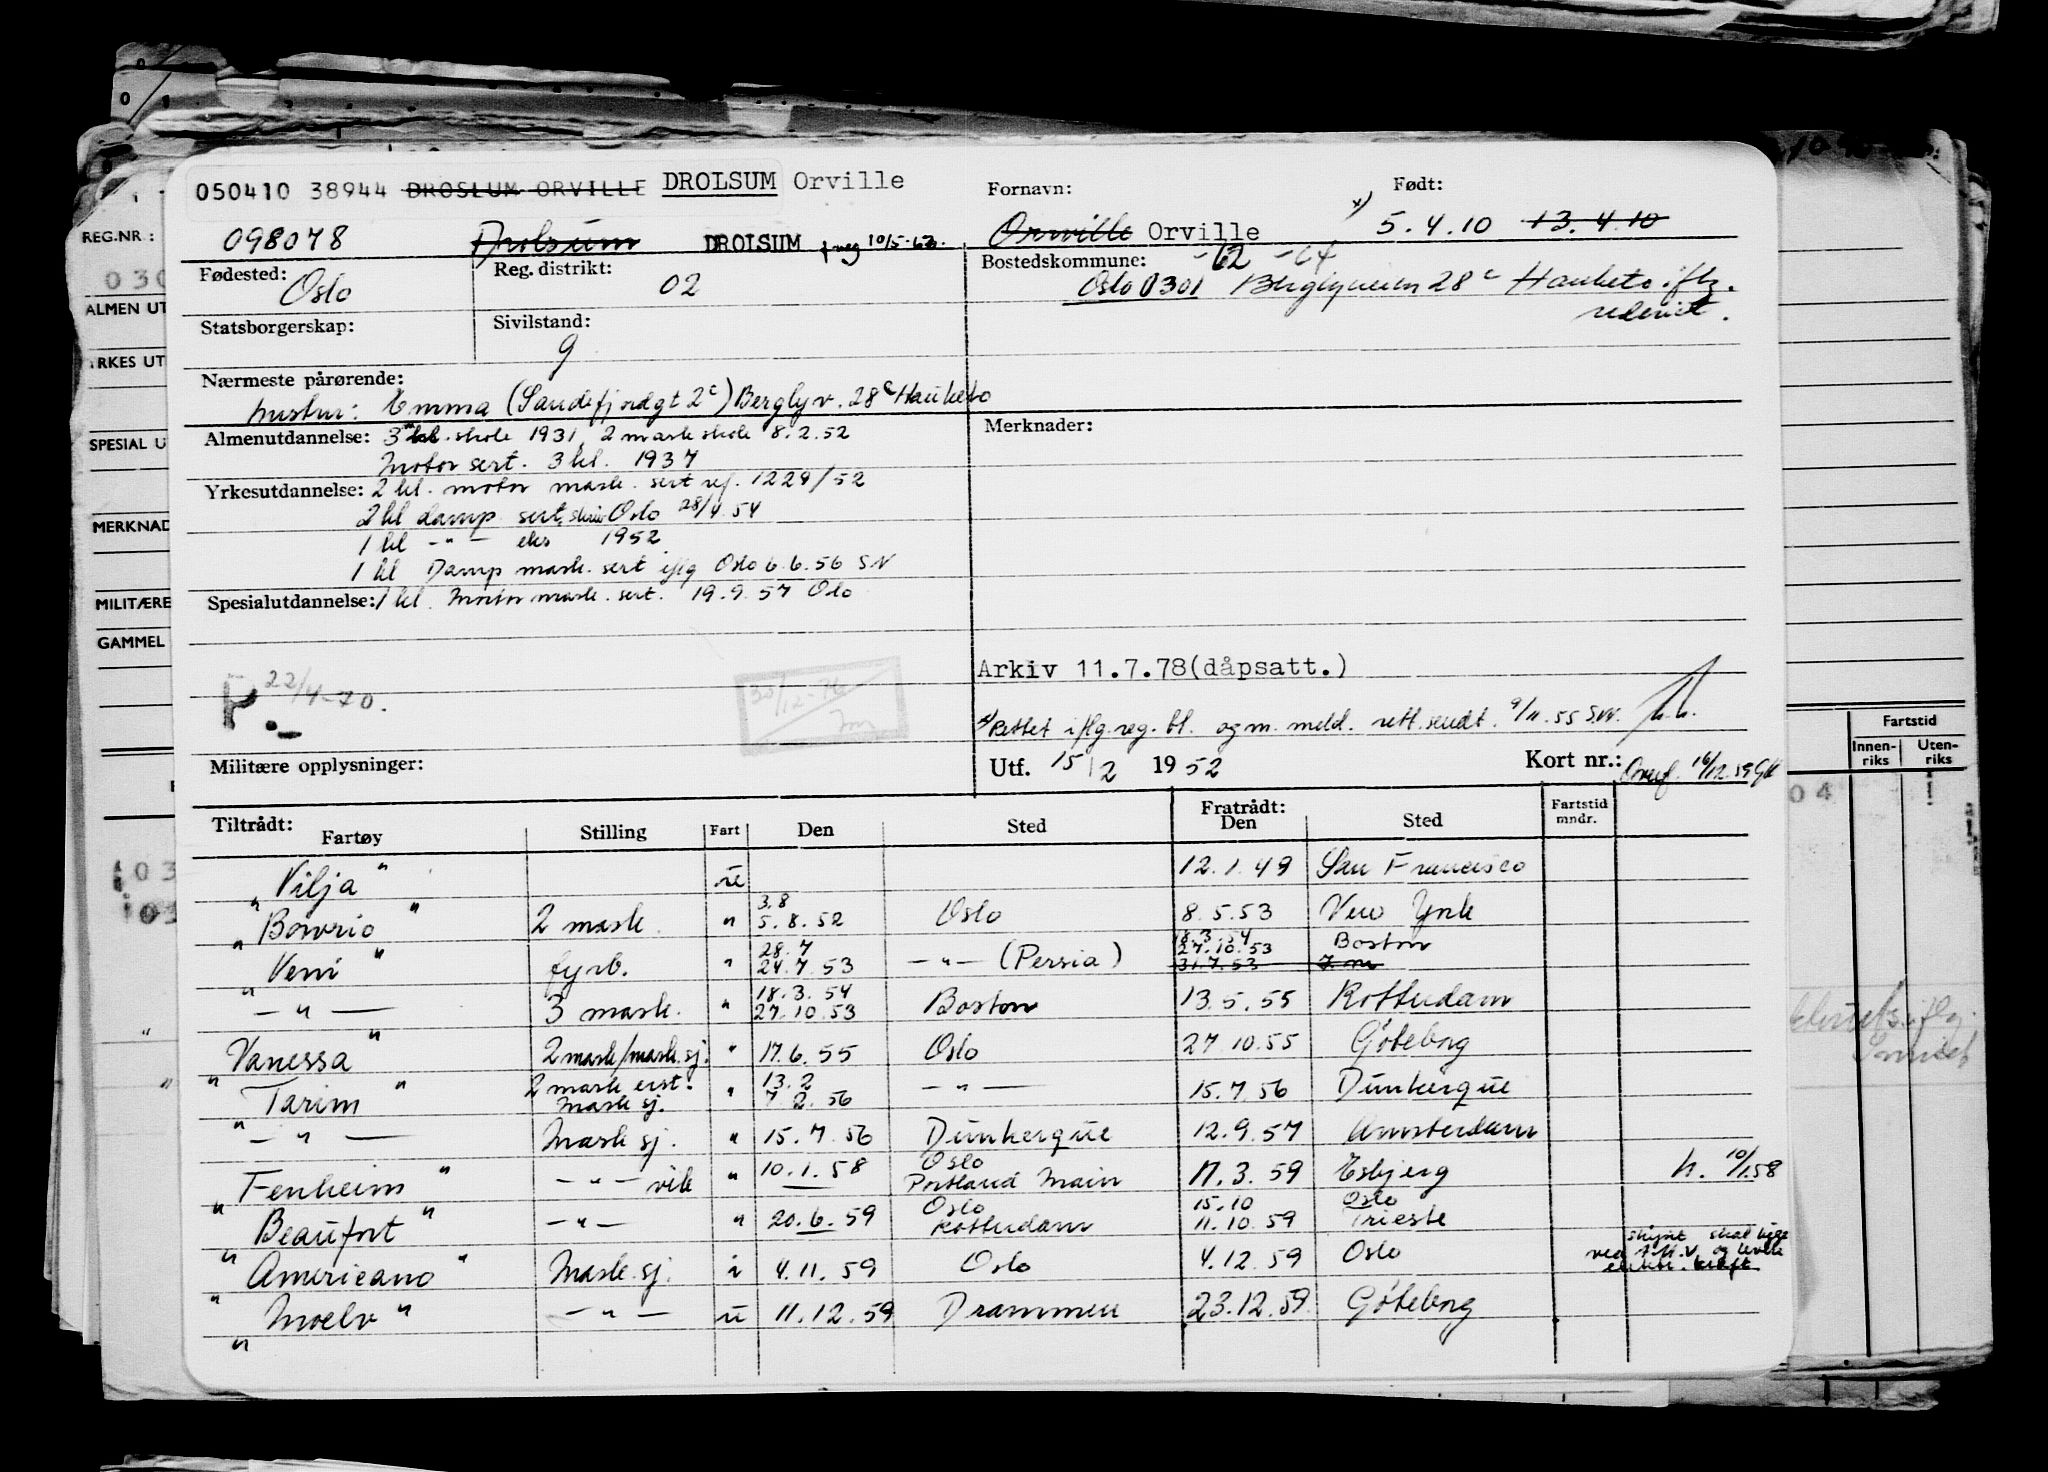 050410 38944 DROSLUM ORVILLE DROLSUM Orville
Fornavn: Født:
098078 Drolsum DROLSUM Orville Orville x) 5.4.10 13.4.10
Fødested: Oslo Reg. distrikt: 02 Bostedskommune: -62 -64
Oslo 0301 Berglyveien 28c Hauketo iflg.
Statsborgerskap: Sivilstand: g
Nærmeste pårørende:
hustru: Emma (Sandefjordgt 2c) Berglyv. 28c Hauketo
Almenutdannelse: 3 skole 1931, 2 mask skole 8.2.52 Merknader:
Motor sert. 3 kl. 1937
Yrkesutdannelse: 2 kl. motor mask. sert ref. 1229/52
2 kl damp sert. Oslo 28/4.54
1 kl -"- eks 1952
1 kl Damp mask. sert iflg Oslo 6.6.56 SN
Spesialutdannelse: 1 kl. Motor mask. sert. 19.9.57 Oslo
Arkiv 11.7.78(dåpsatt.)
P. 22/4-70.
x) Rettet iflg. reg. bl. og m. meld. rett. sendt. 9/11.55 S.W.
Militære opplysninger: Utf. 15/2 1952 Kort nr.: 16/12.59
Tiltrådt: Fratrådt: Fartstid mndr.
Fartøy Stilling Fart Den Sted Den Sted
"Vilja" u 12.1.49 San Francisco
"Bowrio" 2 mask. " 3.8 5.8.52 Oslo 8.5.53 New York
"Veni" fyrb. " 28.7 24.7.53 -"- (Persia) 18.3.54 27.10.53 Boston 31.7.53
-"- 3 mask. " 18.3.54 27.10.53 Boston 13.5.55 Rotterdam
"Vanessa" 2 mask/mask.sj. " 17.6.55 Oslo 27.10.55 Göteborg
"Tarim" 2 mask erst. Mask sj. " 13.2 7.2.56 -"- 15.7.56 Dunkerque
-"- Mask sj. " 15.7.56 Dunkerque 12.9.57 Amsterdam
"Fernheim" -"- vik " 10.1.58 Oslo Portland Main 17.3.59 Esbjerg h. 10/1.58
"Beaufort" -"- " 20.6.59 Oslo Rotterdam 15.10 11.10.59 Oslo Trieste
"Americano" Mask.sj. i 4.11.59 Oslo 4.12.59 Oslo
"Moelv" -"- u 11.12.59 Drammen 23.12.59 Göteborg
REG.NR :
030
ALMEN UT
YRKES UT
SPESIAL U
MERKNAD
MILITÆRE
GAMMEL
Fartstid
Innen-riks Uten-riks
04
03